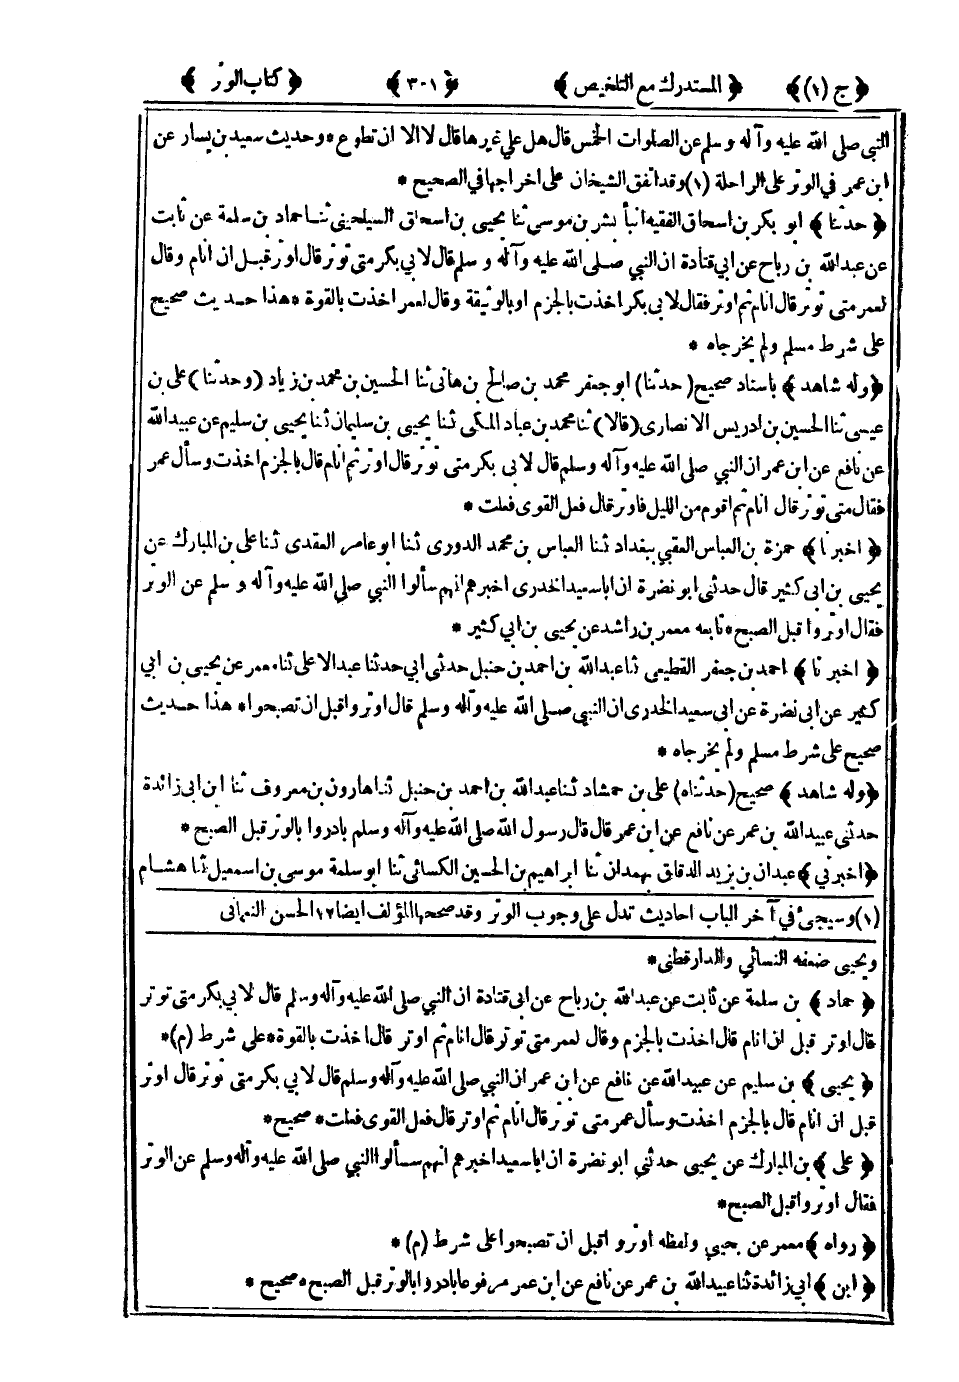 ﴿ ج (١) ﴾ ﴿ المستدرك مع التلخيص ﴾ ﴿ ٣٠١ ﴾ ﴿ كتاب الوتر ﴾
النبى صلى الله عليه وآله وسلم عن الصلوات الخمس قال هل علي غيرها قال لا الا ان تطوع * وحديث سعيد بن يسار عن
ابن عمر في الوتر على الراحلة (١) وقد اتفق الشيخان على اخراجها في الصحيح *
﴿ حدثنا ﴾ ابو بكر بن اسحاق الفقيه انبأ بشر بن موسى ثنا يحيى بن اسحاق السيلحينى ثنا حماد بن سلمة عن ثابت
عن عبدالله بن رباح عن ابي قتادة ان النبي صلى الله عليه وآله وسلم قال لابي بكر متى توتر قال اوتر قبل ان انام وقال
لعمر متى توتر قال انام ثم اوتر فقال لابى بكر اخذت بالجزم او بالوثيقة وقال لعمر اخذت بالقوة * هذا حديث صحيح
على شرط مسلم ولم يخرجاه *
﴿ وله شاهد ﴾ باسناد صحيح (حدثنا) ابو جعفر محمد بن صالح بن هانى ثنا الحسين بن محمد بن زياد (وحدثنا) على بن
عيسى ثنا الحسين بن ادريس الانصارى (قالا) ثنا محمد بن عباد المكى ثنا يحيى بن سليمان ثنا يحيى بن سليم عن عبيدالله
عن نافع عن ابن عمر ان النبي صلى الله عليه وآله وسلم قال لابى بكر متى توتر قال اوتر ثم انام قال بالجزم اخذت وسأل عمر
فقال متى توتر قال انام ثم اقوم من الليل فاوتر قال فعل القوى فعلت *
﴿ اخبرنا ﴾ حمزة بن العباس العقبي ببغداد ثنا العباس بن محمد الدورى ثنا ابو عامر العقدى ثنا على بن المبارك عن
يحيى بن ابى كثير قال حدثنى ابو نضرة ان اباسعيد الخدرى اخبرهم انهم سألوا النبي صلى الله عليه وآله وسلم عن الوتر
فقال اوتروا قبل الصبح * تابعه معمر بن راشد عن يحيى بن ابي كثير *
﴿ اخبرنا ﴾ احمد بن جعفر القطيعى ثنا عبدالله بن احمد بن حنبل حدثنى ابي حدثنا عبد الاعلى ثنا معمر عن يحيى بن ابي
كثير عن ابى نضرة عن ابى سعيد الخدرى ان النبي صلى الله عليه وآله وسلم قال اوتروا قبل ان تصبحوا * هذا حديث
صحيح على شرط مسلم ولم يخرجاه *
﴿ وله شاهد ﴾ صحيح (حدثناه) على بن حمشاد ثنا عبدالله بن احمد بن حنبل ثنا هارون بن معروف ثنا ابن ابى زائدة
حدثنى عبيدالله بن عمر عن نافع عن ابن عمر قال قال رسول الله صلى الله عليه وآله وسلم بادروا بالوتر قبل الصبح *
﴿ اخبرني ﴾ عبدان بن يزيد الدقاق بهمدان ثنا ابراهيم بن الحسين الكسائى ثنا ابو سلمة موسى بن اسمعيل ثنا هشام
(١) وسيجئ في آخر الباب احاديث تدل على وجوب الوتر وقد صححها المؤلف ايضا ١٢ الحسن النعمانى
ويحيى ضعفه النسائي والدارقطنى *
﴿ حماد ﴾ بن سلمة عن ثابت عن عبدالله بن رباح عن ابى قتادة ان النبي صلى الله عليه وآله وسلم قال لابي بكر متى توتر
قال اوتر قبل ان انام قال اخذت بالجزم وقال لعمر متى توتر قال انام ثم اوتر قال اخذت بالقوة * على شرط (م) *
﴿ يحيى ﴾ بن سليم عن عبيدالله عن نافع عن ابن عمر ان النبي صلى الله عليه وآله وسلم قال لابي بكر متى توتر قال اوتر
قبل ان انام قال بالجزم اخذت وسأل عمر متى توتر قال انام ثم اوتر قال فعل القوى فعلت * صحيح *
﴿ على ﴾ بن المبارك عن يحيى حدثني ابو نضرة ان اباسعيد اخبرهم انهم سألوا النبي صلى الله عليه وآله وسلم عن الوتر
فقال اوتروا قبل الصبح *
﴿ رواه ﴾ معمر عن يحيي ولفظه اوتروا قبل ان تصبحوا على شرط (م) *
﴿ ابن ﴾ ابي زائدة ثنا عبيدالله بن عمر عن نافع عن ابن عمر مرفوعا بادروا بالوتر قبل الصبح * صحيح *